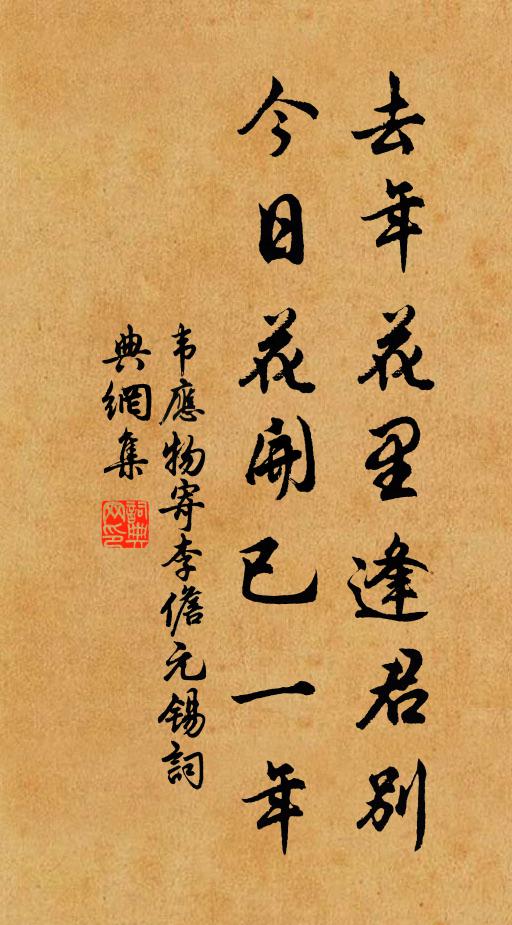 去年花里逢君别
今日花開已一年
韦應物寄李儋元锡詞
典網集
詞典
网印